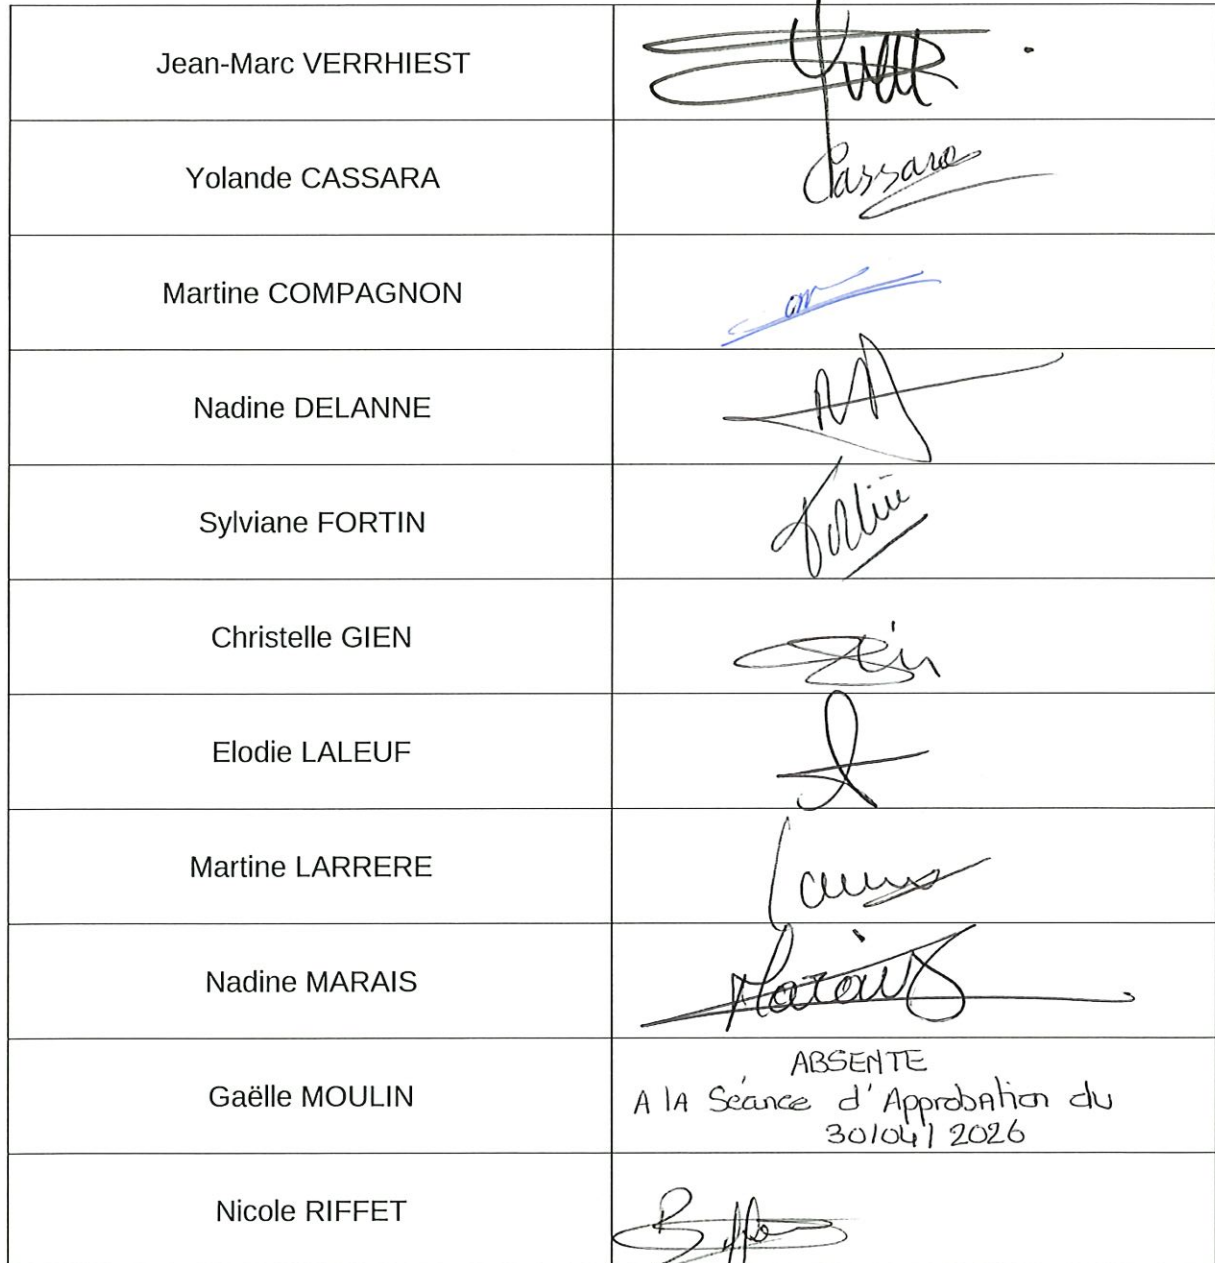 Jean-Marc VERRHIEST
Yolande CASSARA
Cassara
Martine COMPAGNON
Nadine DELANNE
Sylviane FORTIN
Fortin
Christelle GIEN
Elodie LALEUF
Martine LARRERE
Nadine MARAIS
Marais
Gaëlle MOULIN
ABSENTE
A la Séance d'Approbation du
30/04/2026
Nicole RIFFET